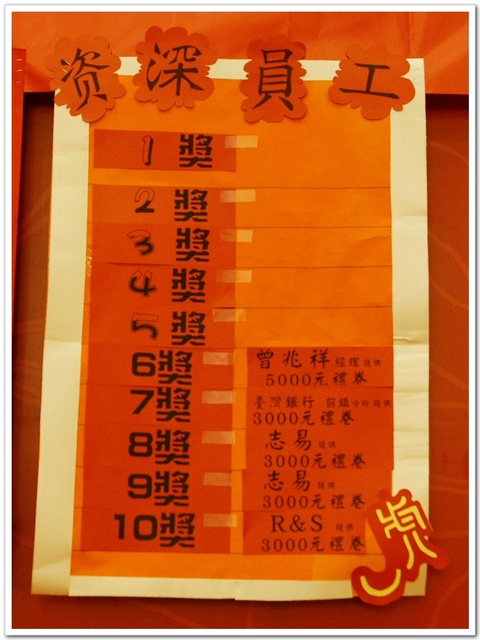 资深員工
1 獎
2 獎
3 獎
4 獎
5 獎
6獎 曾兆祥經理提供
5000元禮券
7獎 臺灣銀行 前鎮分行提供
3000元禮卷
8獎 志易提供
3000元禮券
9獎 志易提供
3000元禮券
10獎 R&S 提供
3000元禮券